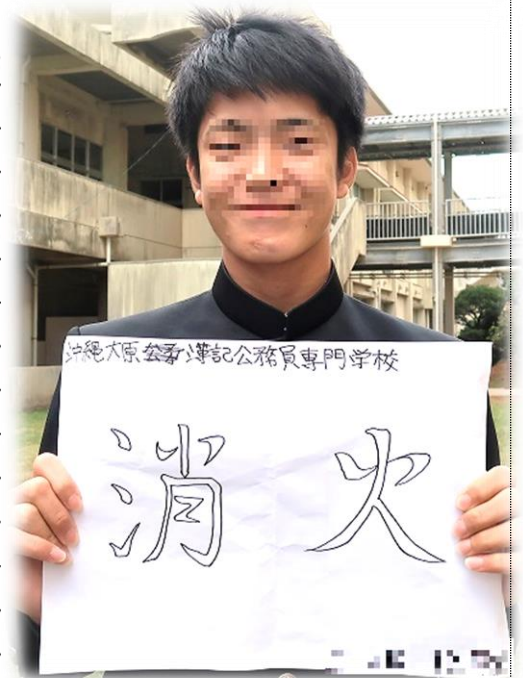 沖縄大原簿記公務員専門学校
消火